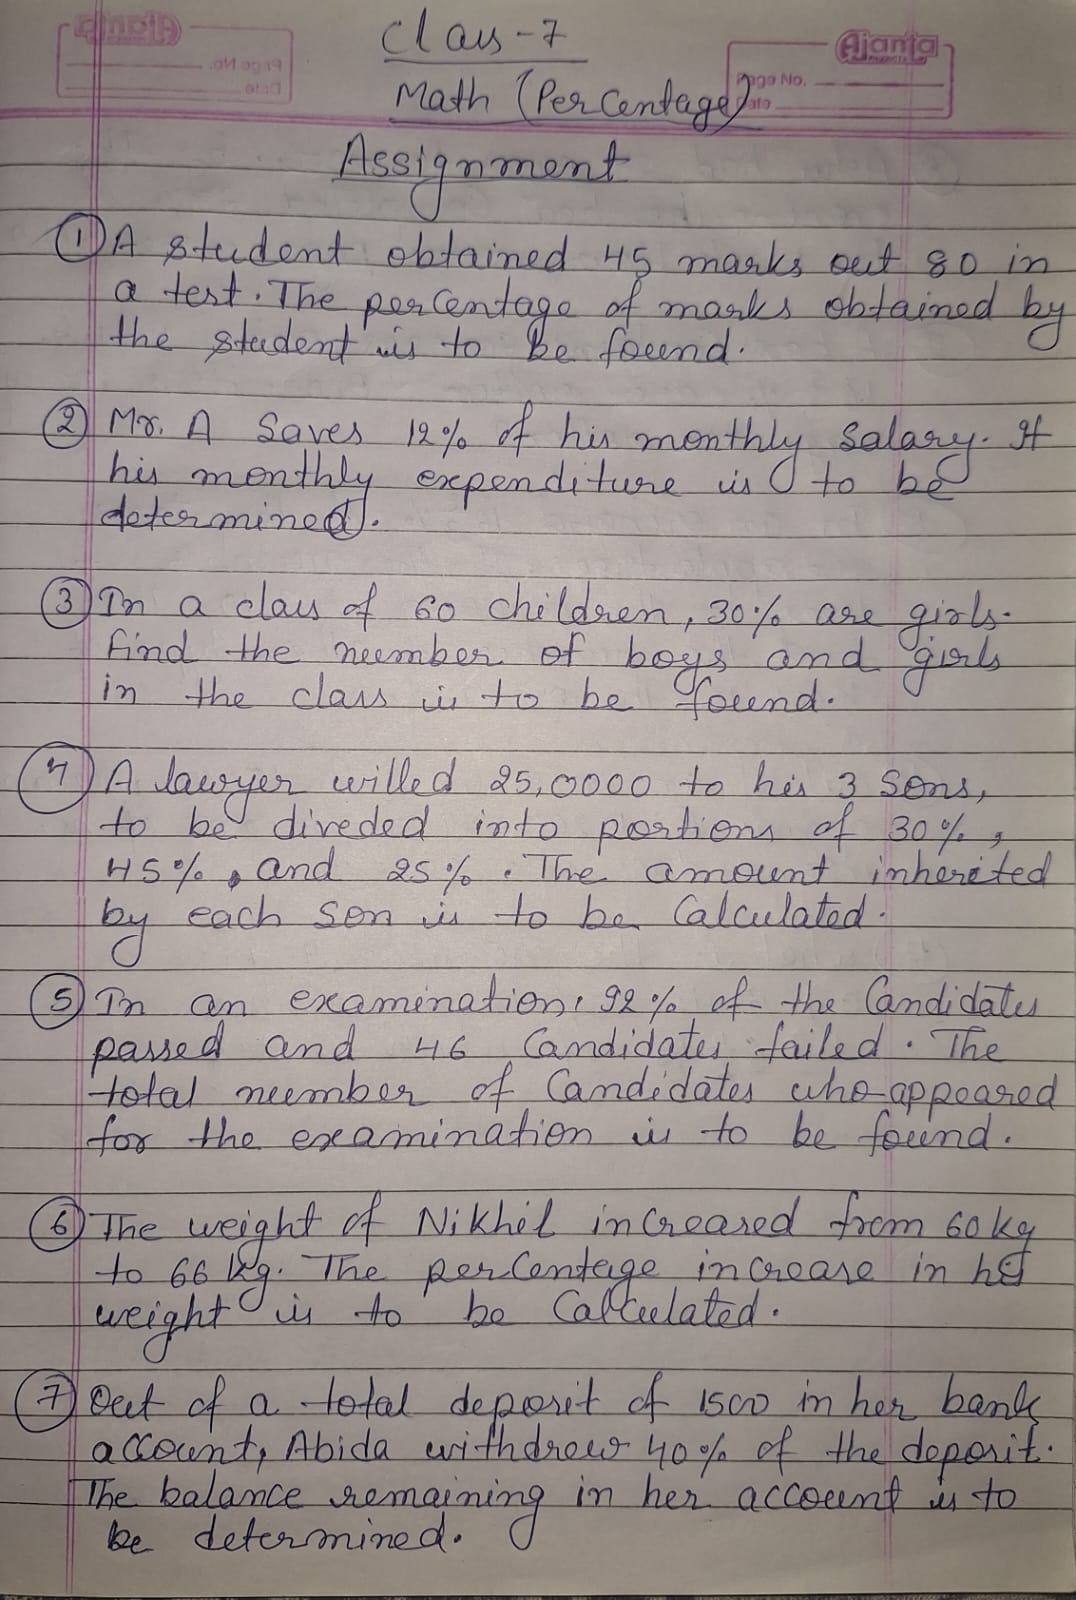 Class-7
Ajanta
Page No.
Date
Math (Percentage)
Assignment
① A student obtained 45 marks out 80 in
a test. The percentage of marks obtained by
the student is to be found.
② Mr. A Saves 12% of his monthly salary. If
his monthly expenditure is to be
determined.
③ In a class of 60 children, 30% are girls.
find the number of boys and girls
in the class is to be found.
④ A lawyer willed 25,0000 to his 3 Sons,
to be diveded into portions of 30%,
45%, and 25%. The amount inhereted
by each son is to be Calculated.
⑤ In an examination, 92% of the Candidates
passed and 46 Candidates failed. The
total number of Candidates who appeared
for the examination is to be found.
⑥ The weight of Nikhil increased from 60 kg
to 66 kg. The percentage increase in his
weight is to be Calculated.
⑦ Out of a total deposit of 1500 in her bank
account, Abida withdrew 40% of the deposit.
The balance remaining in her account is to
be determined.